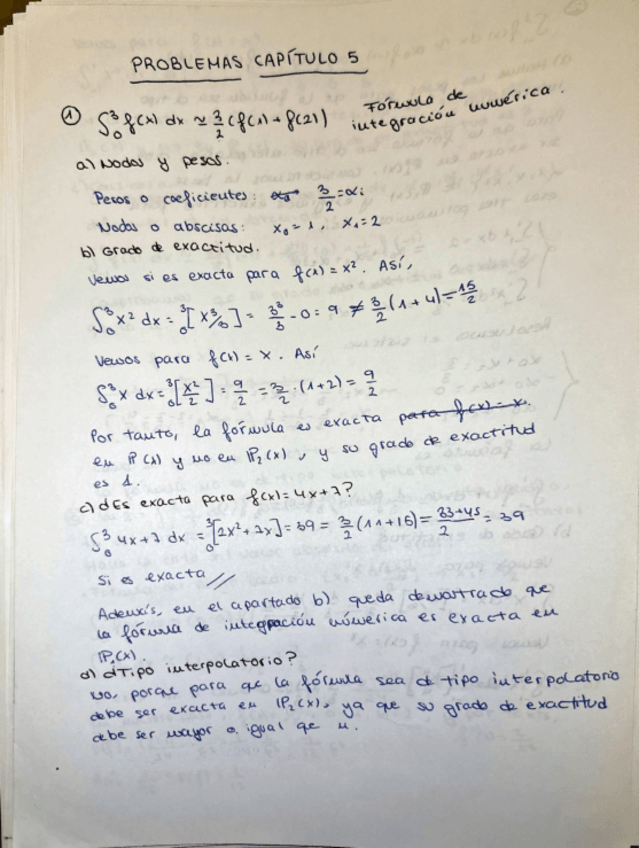 PROBLEMAS CAPÍTULO 5
① ∫₀³ f(x) dx ≃ 3/2 (f(1) + f(2)) Fórmula de
integración numérica.
a) Nodos y pesos.
Pesos o coeficientes: 3/2 = αi
Nodos o abscisas: x₀ = 1, x₁ = 2
b) Grado de exactitud.
Vemos si es exacta para f(x) = x². Así,
∫₀³ x² dx = ₀³[x³/3] = 3³/3 - 0 = 9 ≠ 3/2 (1 + 4) = 15/2
Vemos para f(x) = x. Así
∫₀³ x dx = ₀³[x²/2] = 9/2 = 3/2 · (1+2) = 9/2
Por tanto, la fórmula es exacta para f(x) = x.
en P(1) y no en P₂(x), y su grado de exactitud
es 1.
c) ¿Es exacta para f(x) = 4x+7?
∫₀³ 4x+7 dx = ₀³[2x² + 7x] = 39 = 3/2 (11+15) = 33+45/2 = 39
Si es exacta //
Además, en el apartado b) queda demostrado que
la fórmula de integración númérica es exacta en
P₁(x).
d) ¿Tipo interpolatorio?
No, porque para que la fórmula sea de tipo interpolatorio
debe ser exacta en P₂(x), ya que su grado de exactitud
debe ser mayor o igual que n.